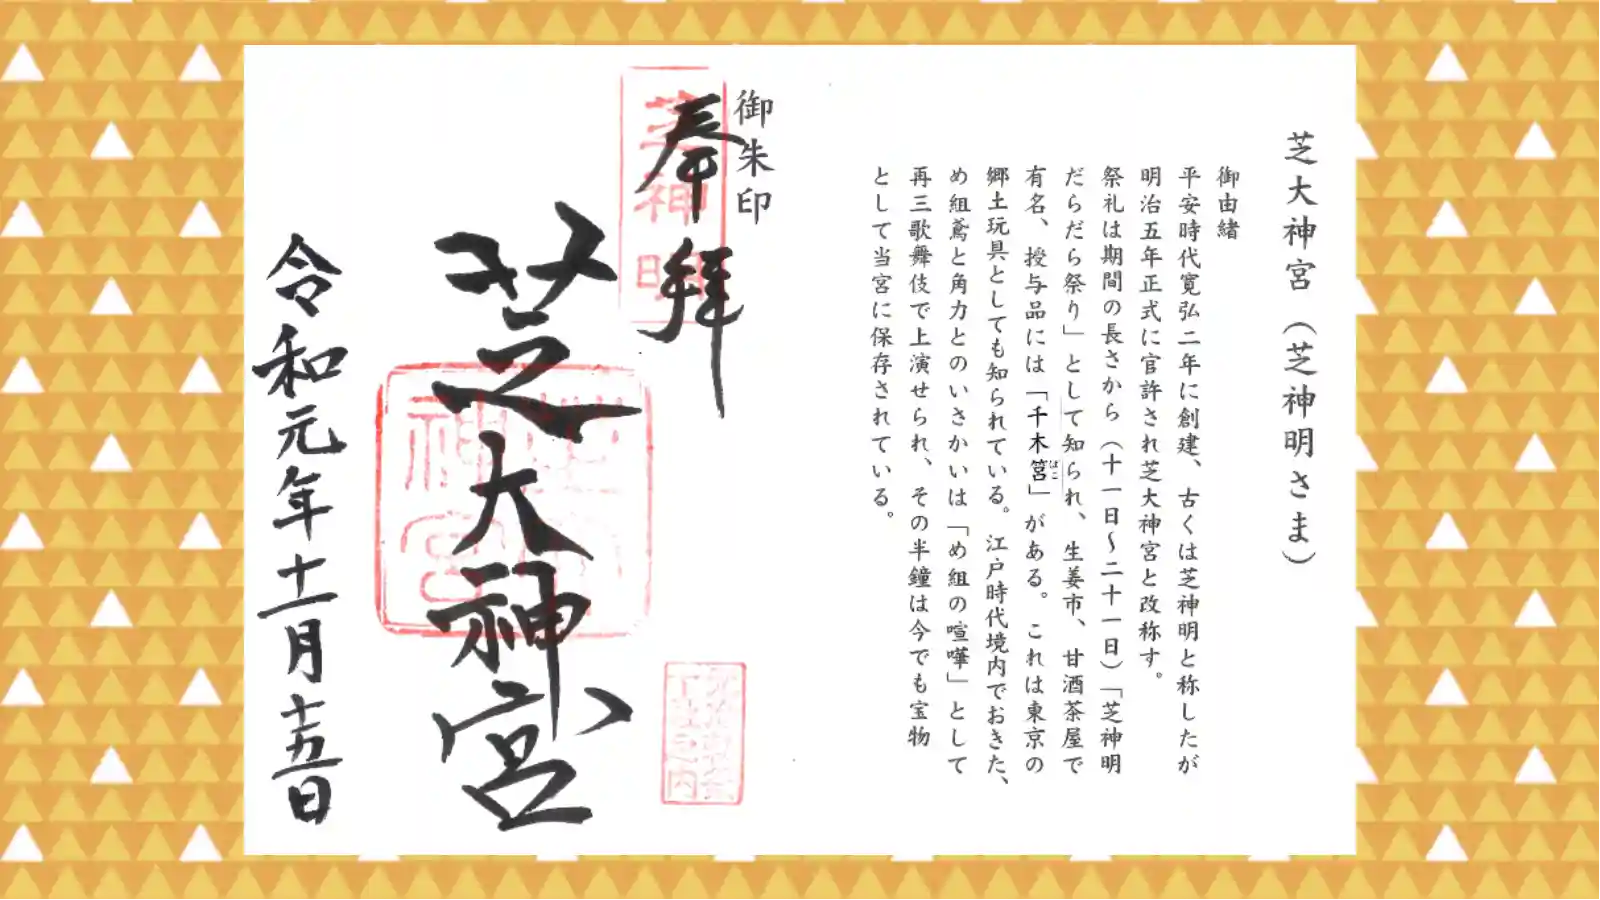 芝大神宮（芝神明さま）
御由緒
平安時代寛弘二年に創建、古くは芝神明と称したが
明治五年正式に官許され芝大神宮と改称す。
祭礼は期間の長さから（十一日～二十一日）「芝神明
だらだら祭り」として知られ、生姜市、甘酒茶屋で
有名、授与品には「千木筥」がある。これは東京の
ばこ
郷土玩具としても知られている。江戸時代境内でおきた、
め組鳶と角力とのいさかいは「め組の喧嘩」として
再三歌舞伎で上演せられ、その半鐘は今でも宝物
として当宮に保存されている。
御朱印
奉拝
芝神明
芝大神宮
令和元年十一月十五日